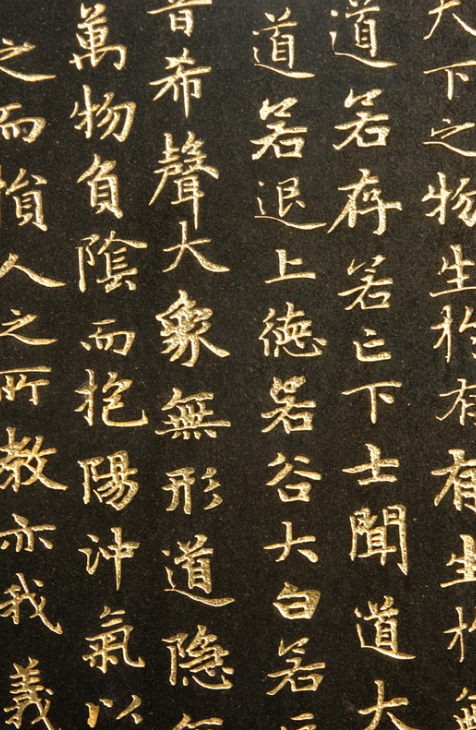 天下之物生於有有生於無
道若存若亡下士聞道大
道若退上徳若谷大白若
音希聲大象無形道隐無
萬物負陰而抱陽沖氣以
之而損人之所教亦我義